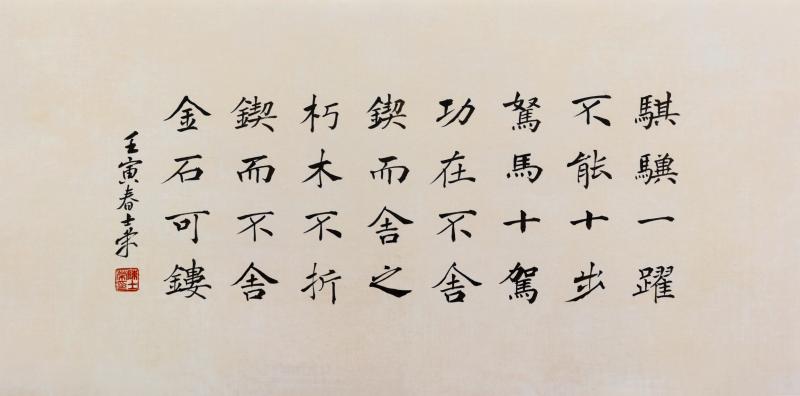 騏驥一躍
不能十步
駑馬十駕
功在不舍
鍥而舍之
朽木不折
鍥而不舍
金石可鏤
壬寅春士榮